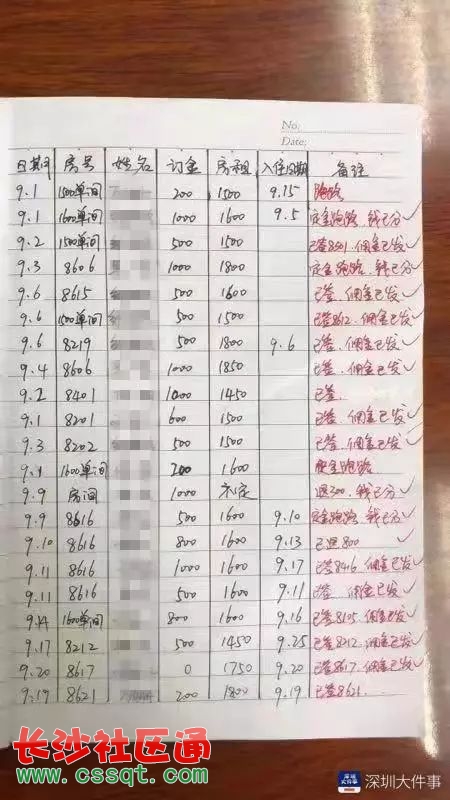 No.
Date:
日期 房号 姓名 订金 房租 入住日期 备注
9.1 1500单间 200 1500 9.15 跑路
9.1 1600单间 1000 1600 9.5 定金跑路 钱已分 ✓
9.2 1500单间 500 1500 已签8301 佣金已发 ✓
9.3 8606 1000 1800 定金跑路 钱已分 ✓
9.6 8615 500 1600 已签 佣金已发 ✓
9.6 1500单间 500 1500 已签8612 佣金已发 ✓
9.6 8219 500 1800 9.6 已签 佣金已发 ✓
9.4 8606 1000 1850 已签 佣金已发 ✓
9.2 8401 1000 1450 已签
9.1 8201 600 1500 已签 佣金已发 ✓
9.3 8202 500 1500 已签 佣金已发 ✓
9.1 1600单间 200 1600 跑路
9.9 房间 1000 不定 退300 钱已分 ✓
9.9 8616 500 1600 9.10 定金跑路 钱已分 ✓
9.10 8616 800 1600 9.13 已退800 ✓
9.11 8616 1000 1600 9.17 已签8416 佣金已发 ✓
9.11 8616 500 1600 9.11 已签 佣金已发 ✓
9.14 1600单间 800 1600 9.16 已签8105 佣金已发 ✓
9.17 8212 500 1450 9.25 已签8212 佣金已发 ✓
9.20 8617 0 1750 9.20 已签8617 佣金已发 ✓
9.19 8621 200 1800 9.19 已签8621
长沙社区通
www.cssqt.com
深圳大件事
深圳大件事